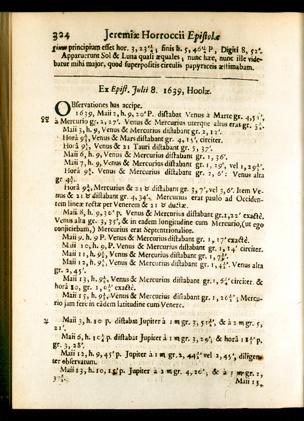 324 Jeremiæ Horroccii Epistolæ
principium esset hor. 3, 23', finis h. 5, 46 P, Digiti 8, 52'.
Apparuerunt Sol & Luna quasi æquales; nunc hæc, nunc ille videbatur
mihi major, quod superpositis circulis papyraceis æstimabam.
Ex Epist. Julii 8. 1639, Hoolæ.
Observationes has accipe.
1639, Maii 2, h. 9, 20' P. distabat Venus à Marte gr. 4, 51',
à Mercurio gr. 2, 27'. Venus & Mercurius uterque altus erat gr.
Maii 3, h. 9, Venus & Mercurius distabant gr. 2, 12'.
Horâ 9¼, Venus & Mars distabant gr. 4, 15', circiter.
Horâ 9¼, Venus & 21 Tauri distabant gr. 5, 37'.
Maii 6, h. 9, Venus & Mercurius distabant gr. 1, 36'.
Maii 7, h. 9, Venus & Mercurius distabant gr. 1, 29', vel 1, 29
Horâ 9¼, Venus & Mercurius distabant gr. 2, 6': Venus alta
gr. 4
Horâ 9¼, Mercurius & 21 ♉ distabant gr. 3, 7', vel 3, 6'. Item Venus
& 21 ♉ distabant gr. 4, 34'. Mercurius erat paulo ad Occidentem
lineæ rectæ per Venerem & 21 ♉ ductæ.
Maii 8, h. 9, 36' P. Venus & Mercurius distabant gr. 1, 22' exactè.
Venus alta gr. 3, 35', & in eadem longitudine cum Mercurio, (ut ego
conjiciebam,) Mercurius erat Septentrionalior.
Maii 9, h. 9 P. Venus & Mercurius distabant gr. 1, 17' exactè.
Maii 10, h. 9, P. Venus & Mercurius distabant gr. 1, 14' circiter.
Maii 11, h. 9¼, Venus & Mercurius distabant gr. 1, 7
Maii 12, h. 9¼, Venus & Mercurius distabant gr. 1, 4 Venus alta
gr. 2, 45'.
Maii 13, h. 9¼, Venus & Mercurius distabant gr. 1, 6 circiter. &
horâ 10, gr. 1, 6 exactè.
Maii 15, h. 9¼, Venus & Mercurius distabant gr. 1, 26 Mercurio
jam ferè in eâdem latitudine cum Venere.
♃ Maii 3, h. 10 p. distabat Jupiter à 1 m gr. 3, 51 & à 2 m gr. 5,
21'.
Maii 6, h. 10¼ p. distabat Jupiter à 1 m gr. 3, 29', & horâ 11 p,
gr. 3, 28'.
Maii 12, h. 9, 45' p. Jupiter à 1 m gr. 2, 44 vel 2, 45', diligenter
observatum.
Maii 13, h. 10, p. Jupiter à 2 m gr. 4, 26', & à m gr. 2,
37
Maii 15,